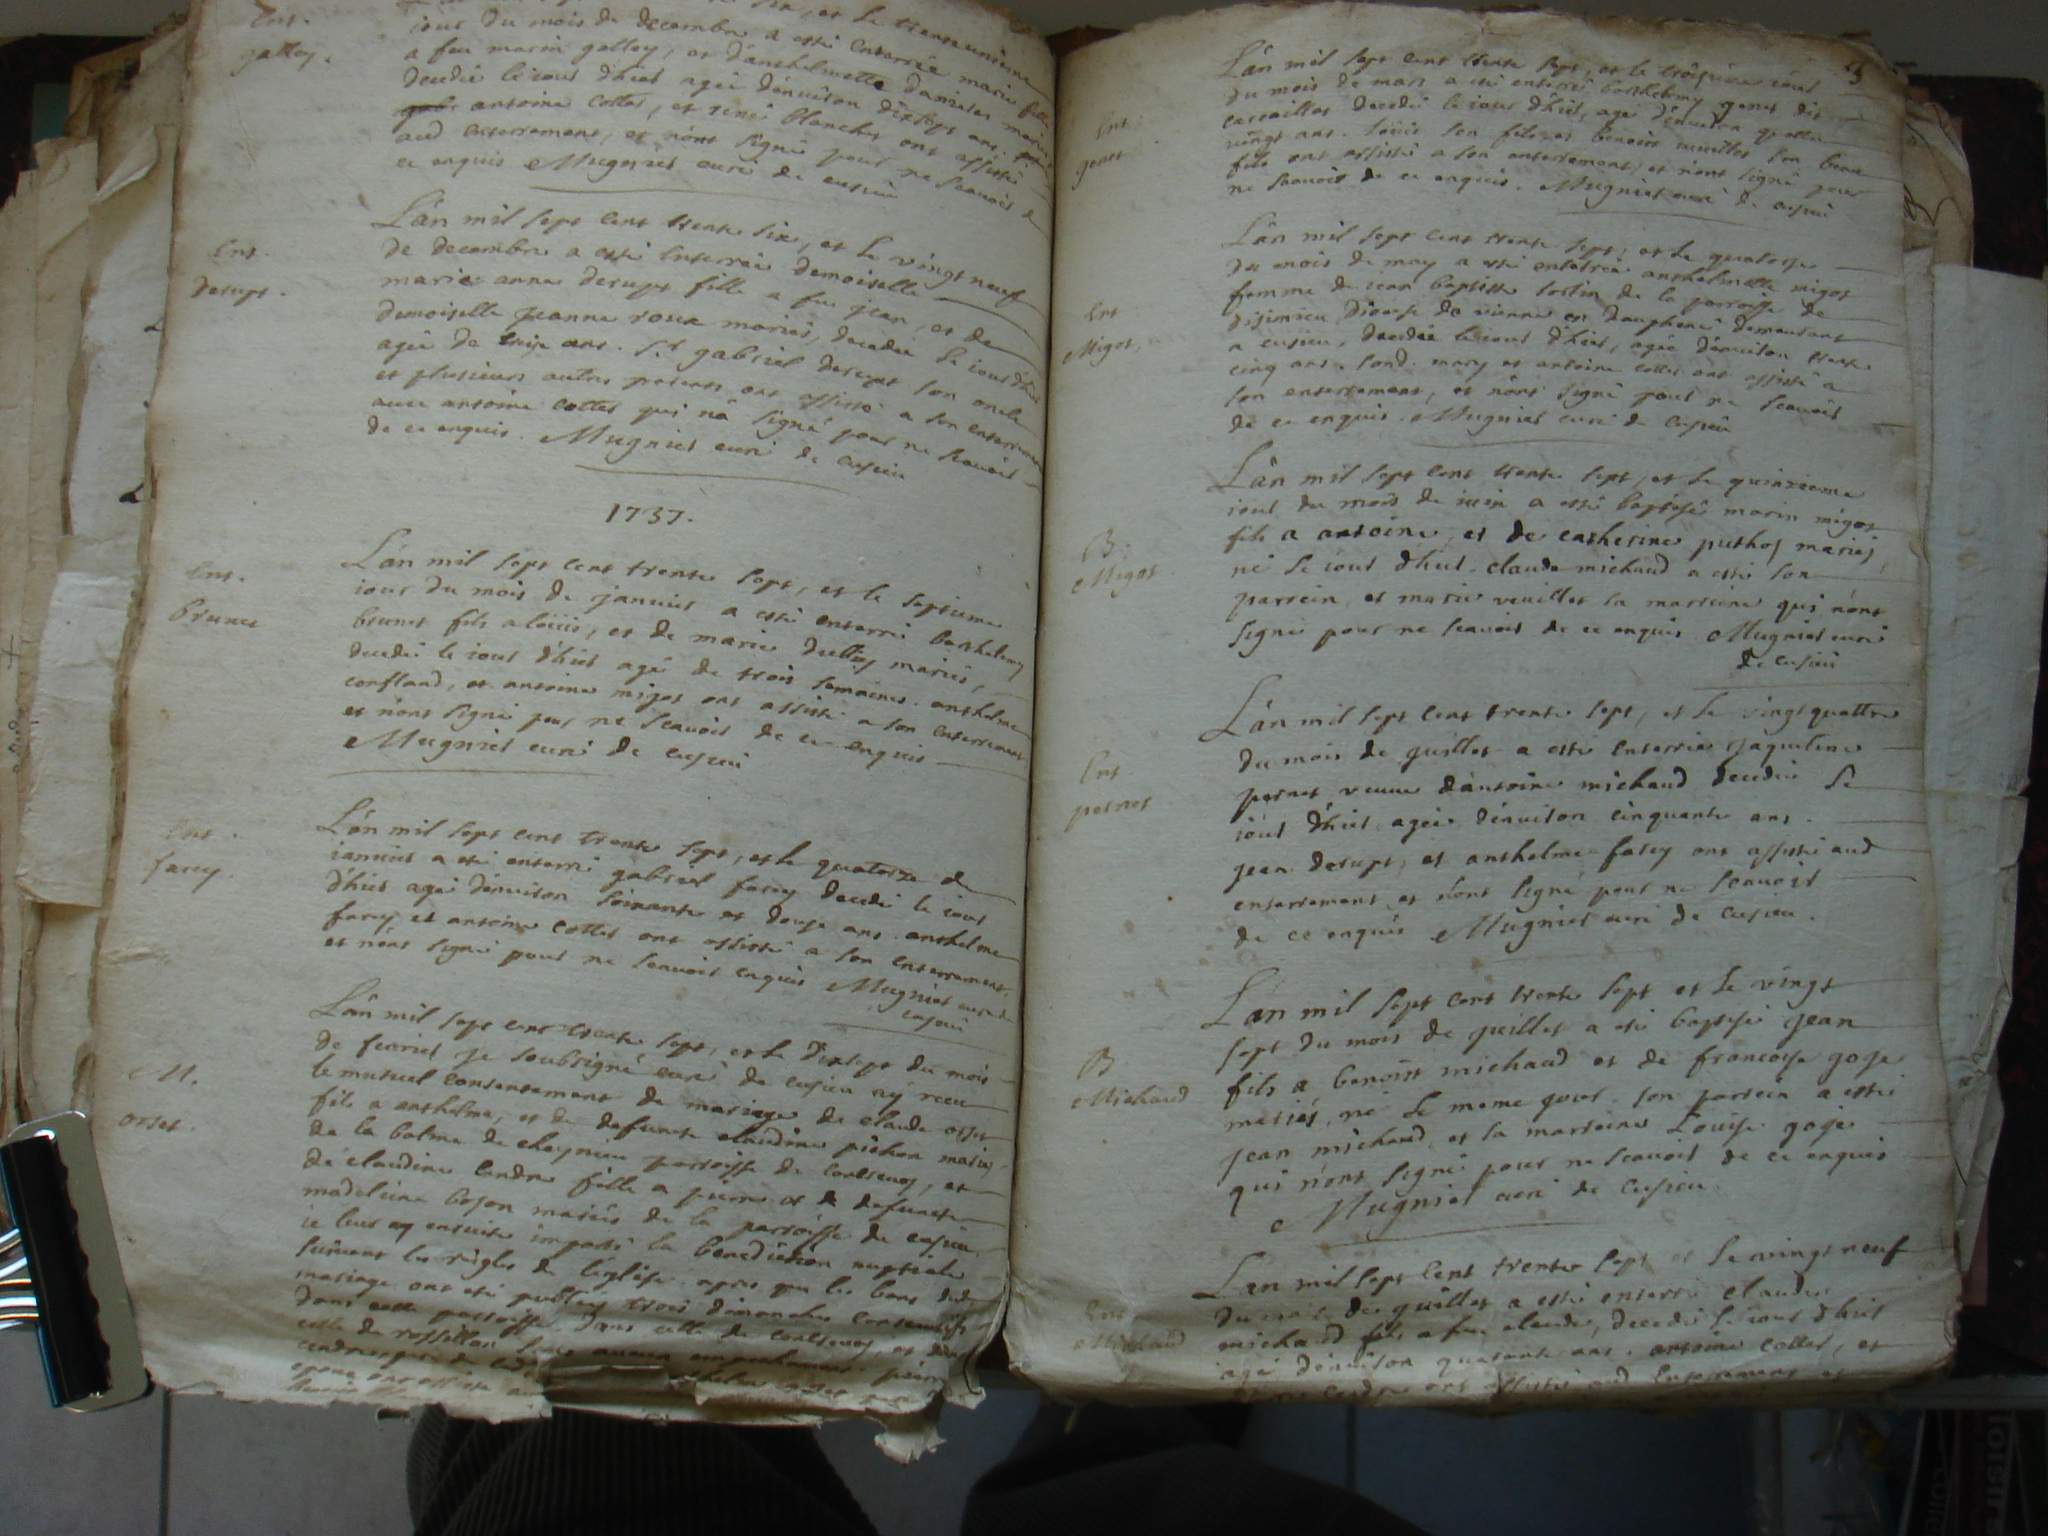 Ent.
galley.
jour du mois de decembre a esté enterrée marie fille
a feu marin galley, et d'anthelmette daniere mariés
decedée le jour d'hier agée d'environ dixsept ans.
antoine cottet, et rené blanchet ont assisté
aud enterrement, et n'ont signé pour ne scavoir de
ce enquis Mugnier curé de cusieu
Ent.
decrept.
L'an mil sept cent trente six, et le vingt neuf
de decembre a esté enterrée demoiselle
marie anne decrept fille a feu jean, et de
demoiselle jeanne roux mariés, decedée le jour d'hier
agée de treize ans. Sr gabriel decrept son oncle
et plusieurs autres presents ont assisté a son enterrement
avec antoine cottet qui n'a signé pour ne scavoir
de ce enquis. Mugnier curé de cusieu
1737.
Ent.
brunet
L'an mil sept cent trente sept, et le septieme
jour du mois de janvier a esté enterré barthelemy
brunet fils a loüis, et de marie mariés,
decedé le jour d'hier agé de trois semaines. anthelme
confland, et antoine migot ont assisté a son enterrement
et n'ont signé pour ne scavoir de ce enquis
Mugnier curé de cusieu
Ent.
farcy.
L'an mil sept cent trente sept, et le quatorze de
janvier a esté enterré gabriel farcy decedé le jour
d'hier agé d'environ soixante et douze ans. anthelme
farcy et antoine cottet ont assisté a son enterrement.
et n'ont signé pour ne scavoir enquis Mugnier curé de
cusieu
M.
orset.
L'an mil sept cent trente sept, et le dixsept du mois
de fevrier je soubsigné curé de cusieu ay receu
le mutuel consentement de mariage de claude orset
fils a anthelme, et de defunte claudine pichon mariés
de la balme de cheynieu parroisse de contrevoz, et
de claudine cendre fille a pierre et de defunte
madeleine boson mariés de la parroisse de cusieu
je leur ay ensuite imparti la benediction nuptiale
suivant les regles de l'eglise apres que les bans dud
mariage ont été publiés trois dimanches consecutifs
dans cette parroisse, dans celle de contrevoz et dans
celle de rossillon sans aucun empechement. pierre
Ent.
genet
L'an mil sept cent trente sept, et le troisieme jour
du mois de mars a esté enterré barthelemy genet dit
decedé le jour d'hier, agé d'environ quatre
vingt ans. Loüis son fils, et benoist veuillet son beau
fils ont assisté a son enterrement, et n'ont signé pour
ne scavoir de ce enquis. Mugnier curé de cusieu
Ent
Migot.
L'an mil sept cent trente sept, et le quatorze
du mois de may a esté enterrée anthelmette migot
femme de jean baptiste de la parroisse de
disimieu diocese de vienne en dauphené demeurant
a cusieu, decedée le jour d'hier, agée d'environ trente
cinq ans. sond. mary et antoine cottet ont assisté a
son enterrement, et n'ont signé pour ne scavoir
de ce enquis. Mugnier curé de cusieu
B.
Migot
L'an mil sept cent trente sept, et le quinzieme
jour du mois de juin a esté baptisé marin migot
fils a antoine, et de catherine puthoz mariés,
né le jour d'hier. claude michaud a esté son
parrein, et marie veuillet sa marreine qui n'ont
signé pour ne scavoir de ce enquis Mugnier curé
de cusieu
Ent.
pernet
L'an mil sept cent trente sept, et le vingt quattre
du mois de juillet a esté enterrée jaqueline
pernet veuve d'antoine michaud decedée le
jour d'hier agée d'environ cinquante ans.
jean decrept, et anthelme farcy ont assisté aud
enterrement, et n'ont signé pour ne scavoir
de ce enquis Mugnier curé de cusieu.
B.
Michaud
L'an mil sept cent trente sept et le vingt
sept du mois de juillet a esté baptisé jean
fils a benoist michaud et de francoise goje
mariés, né le meme jour. son parrein a esté
jean michaud, et sa marreine Loüise goje
qui n'ont signé pour ne scavoir de ce enquis
Mugnier curé de cusieu.
Ent
Michaud
L'an mil sept cent trente sept et le vingt neuf
du mois de juillet a esté enterré claude
michaud fils a feu claude, decedé le jour d'hier
agé d'environ quarante ans. antoine cottet, et
cendre ont assisté aud enterrement et